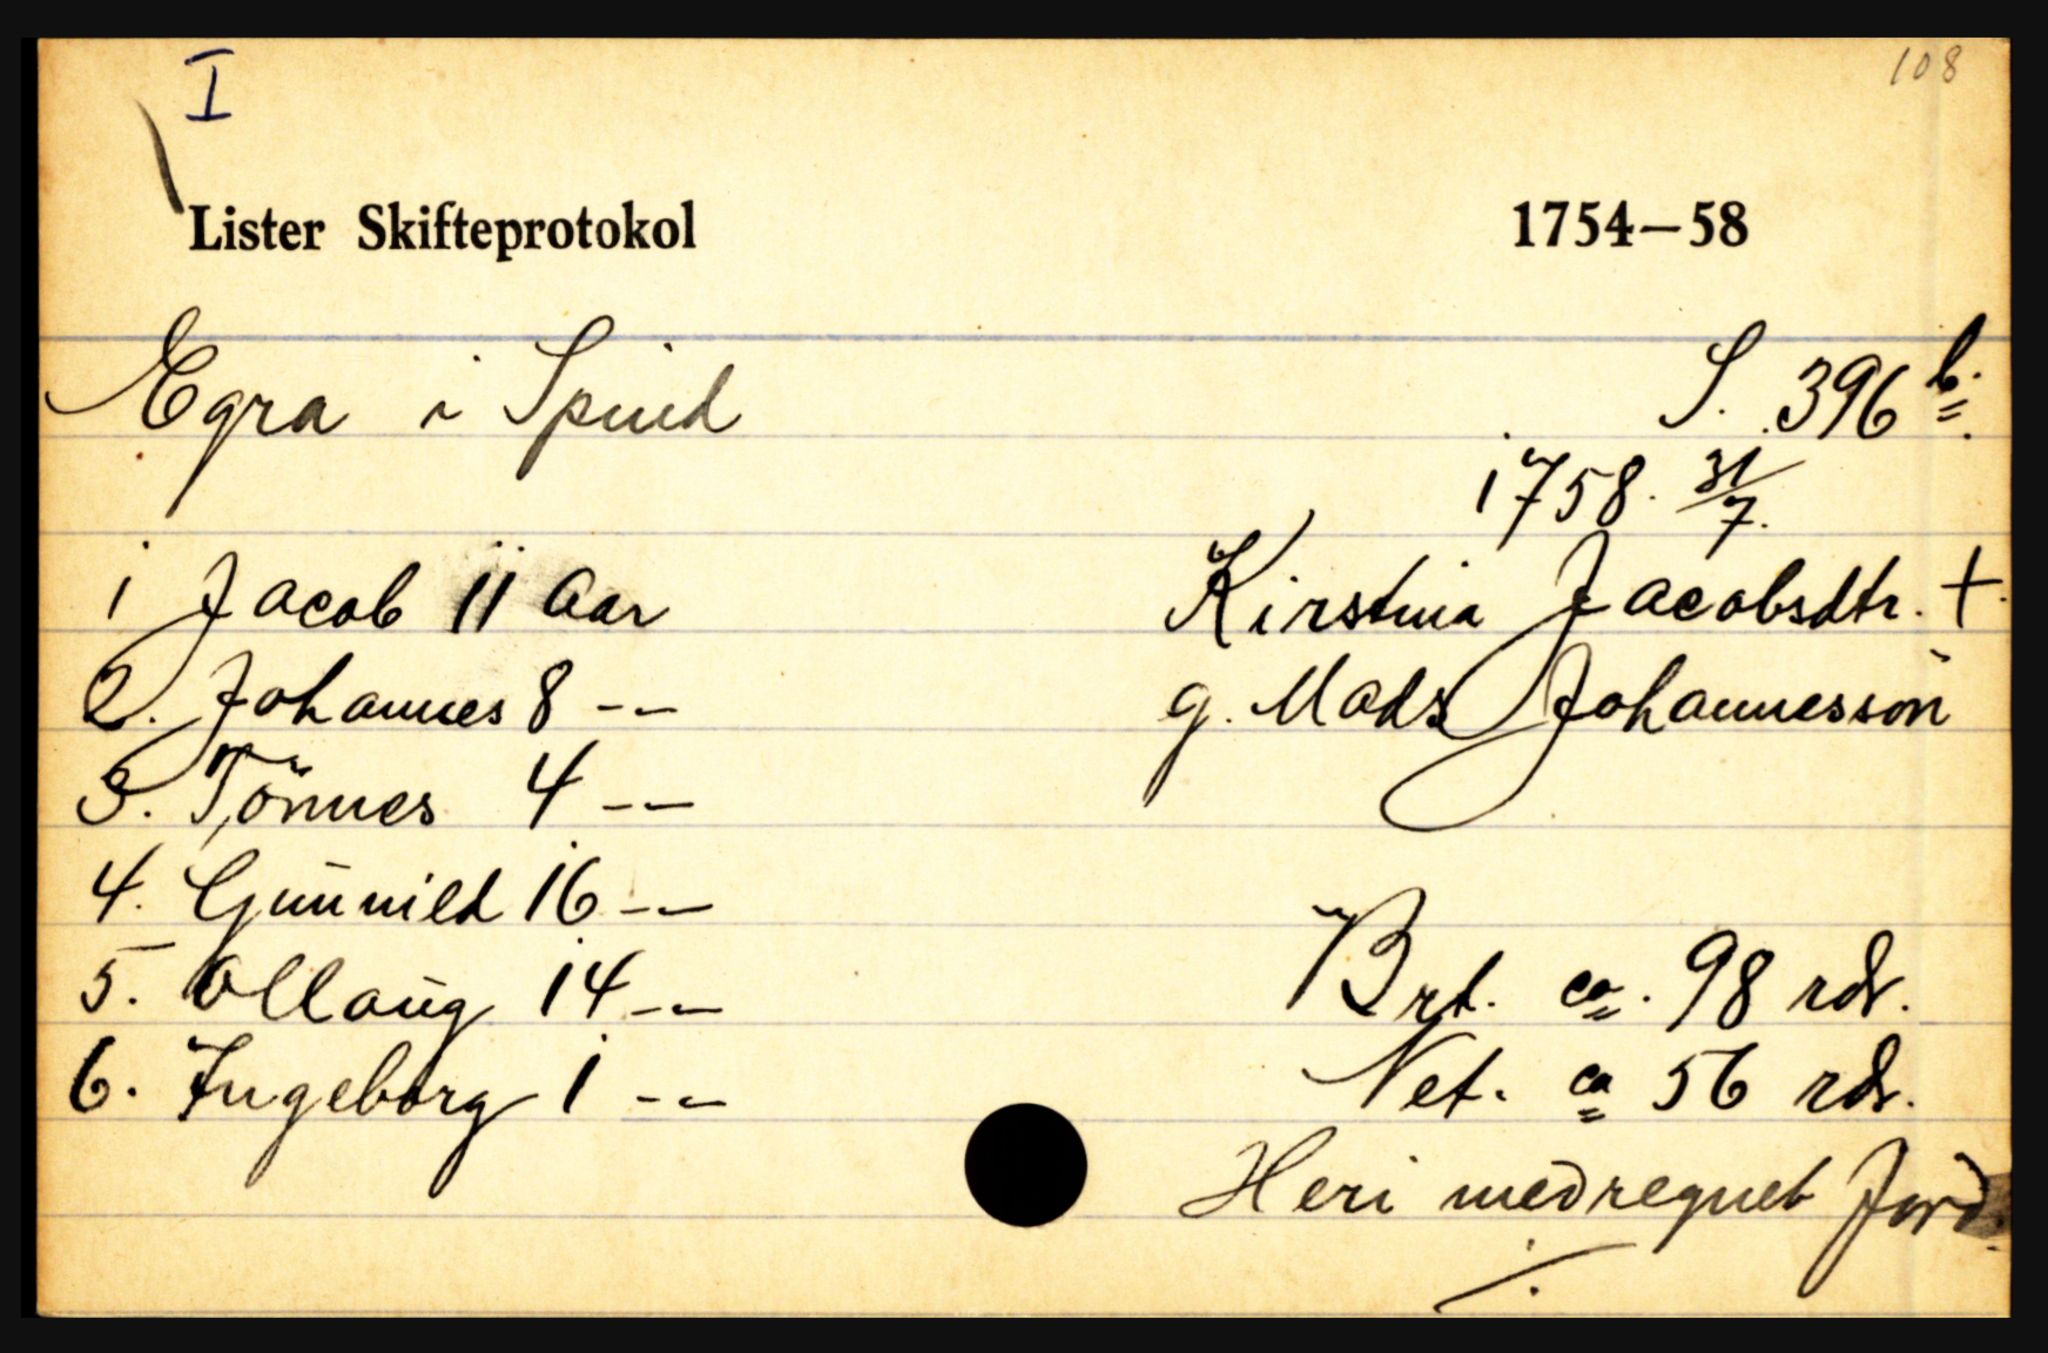 I
108
Lister Skifteprotokol 1754—58
Egra i Spind S. 396 b.
1758. 31/7.
1 Jacob 11 Aar Kirstina Jacobsdtr. +.
2. Johannes 8 -- g. Mads Johannessøn
3. Tönnes 4 --
4. Gunnild 16 --
5. Ollaug 14 -- Brt. ca. 98 rdr.
6. Ingeborg 1 -- Net. ca 56 rdr.
Heri medregnet Jord.